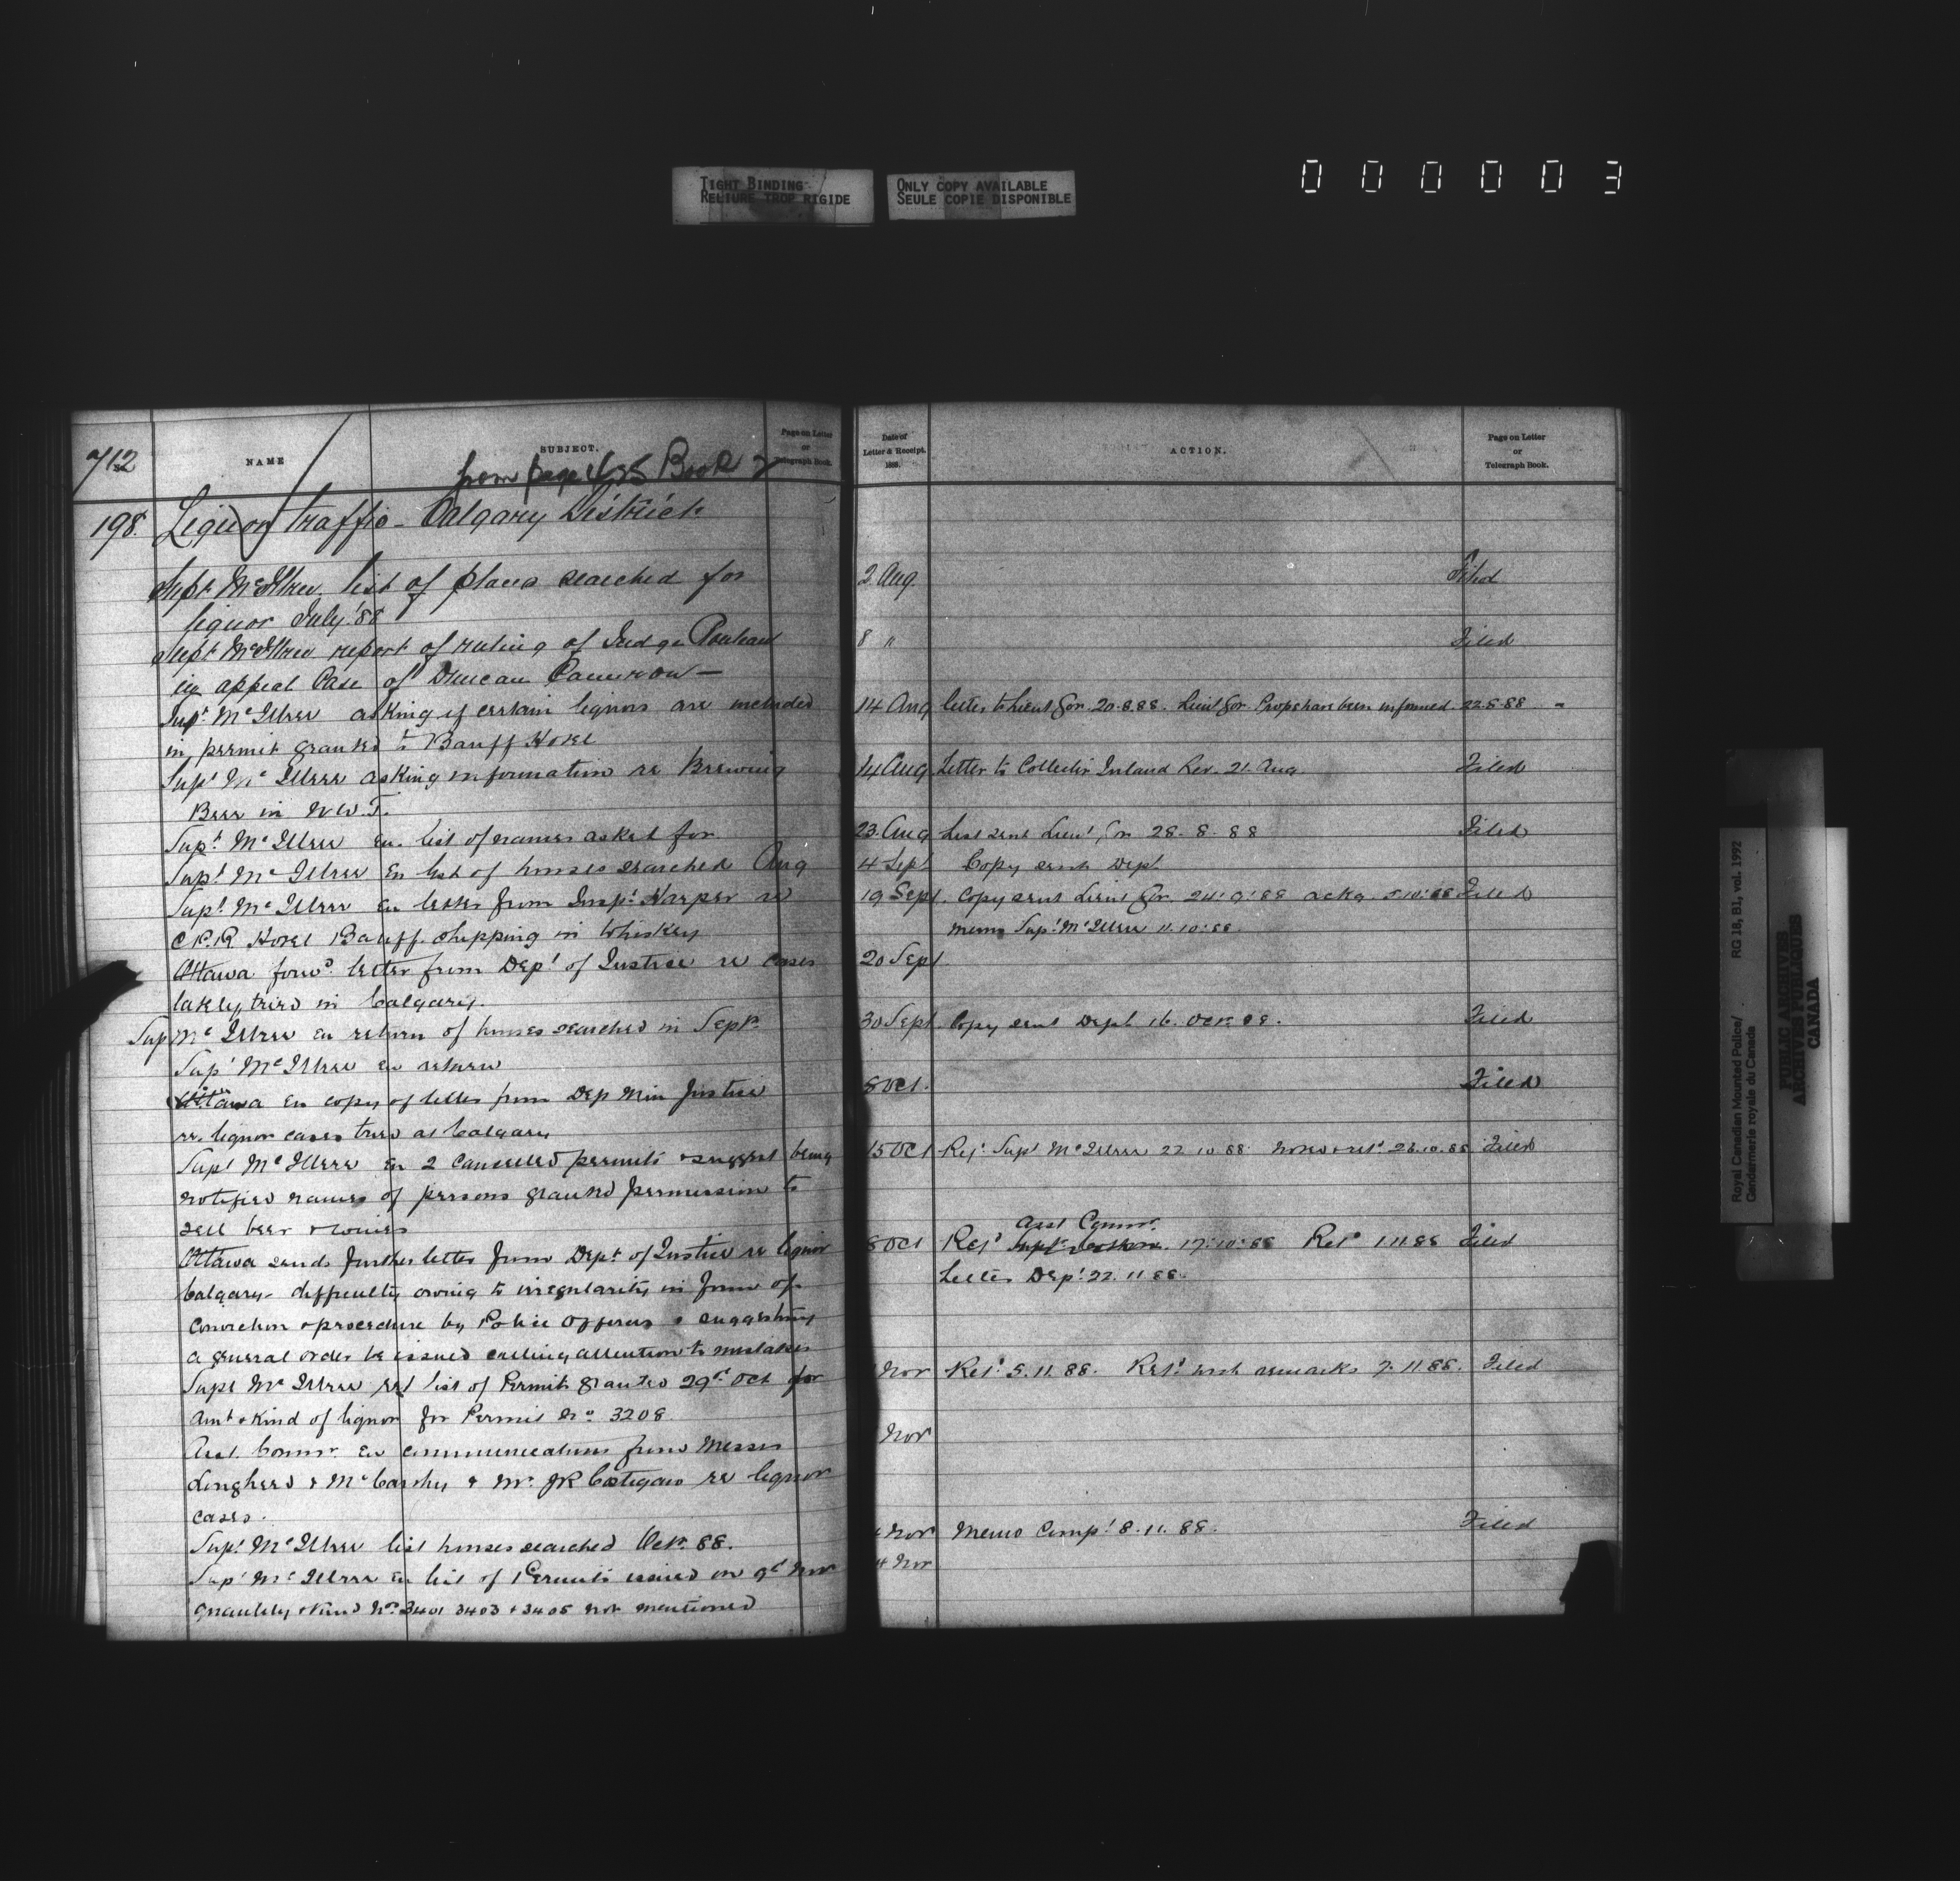 TIGHT BINDING
RELIURE TROP RIGIDE
ONLY COPY AVAILABLE
SEULE COPIE DISPONIBLE
000003
712
NAME
SUBJECT.
Page on Letter
or
Telegraph Book.
from page Book 2
198. Liquor traffic - Calgary District
Supt McIllree list of places searched for
liquor July '88
Supt McIllree report of ruling of Judge Rouleau
in appeal Case of Duncan Cameron —
Supt McIllree asking if certain liquors are included
in permit granted to Banff Hotel
Supt McIllree asking information re Brewing
Beer in N.W.T.
Supt McIllree en. list of names asked for
Supt McIllree en list of houses searched Aug
Supt McIllree en letter from Inspr Harper re
C.P.R Hotel Banff shipping in Whiskey
Ottawa forwd letter from Dept of Justice re cases
lately tried in Calgary.
Sup McIllree en return of houses searched in Sept.
Supt McIllree en return
Ottawa en copy of letter from Dep Min Justice
re. liquor cases tried at Calgary
Supt McIllree en 2 cancelled permits & suggest being
notified names of persons granted permission to
sell beer & wines
Ottawa sends further letter from Dept of Justice re liquor
Calgary - difficulty owing to irregularity in form of
conviction & procedure by Police Officers & suggesting
a general order be issued calling attention to mistakes
Supt McIllree ret list of Permits granted 29th Oct for
Amt & Kind of liquor for Permit No 3208
Asst. Commr. en communications from Messrs
Lougheed & McCarthy & Mr. JR Costigan re liquor
cases.
Supt McIllree list houses searched Octr. 88.
Supt McIllree en list of Permits issued on 9th Nov
quantity & kind Nos 3401 3403 & 3405 not mentioned
Date of
Letter & Receipt.
1888.
ACTION.
Page on Letter
or
Telegraph Book.
2 Aug. Filed
8 " Filed
14 Aug Letter to Lieut Gov. 20.8.88. Lieut Gov. have been informed 22.8.88
14 Aug Letter to Collector Inland Rev. 21. Aug. Filed
23. Aug List sent Lieut Gov 28. 8. 88 Filed
4 Sept Copy sent Dept.
19 Sept. Copy sent Lieut Gov. 24.9.88 ackg 5.10.88 Filed
memo Supt McIllree 11.10.88.
20 Sept
30 Sept Copy sent Dept 16. Oct 88. Filed
8 Oct. Filed
15 Oct Refd Supt McIllree 22.10.88 noted & retd 26.10.88 Filed
Asst Commr.
8 Oct Refd 17.10.88 Retd 1.11.88 Filed
Letter Dept 22.11.88.
Nov Retd 5.11.88. Retd with remarks 7.11.88. Filed
Nov
Nov Memo Compt 8.11.88. Filed
4 Nov
Royal Canadian Mounted Police/
Gendarmerie royale du Canada
RG 18, B1, vol. 1992
PUBLIC ARCHIVES
ARCHIVES PUBLIQUES
CANADA